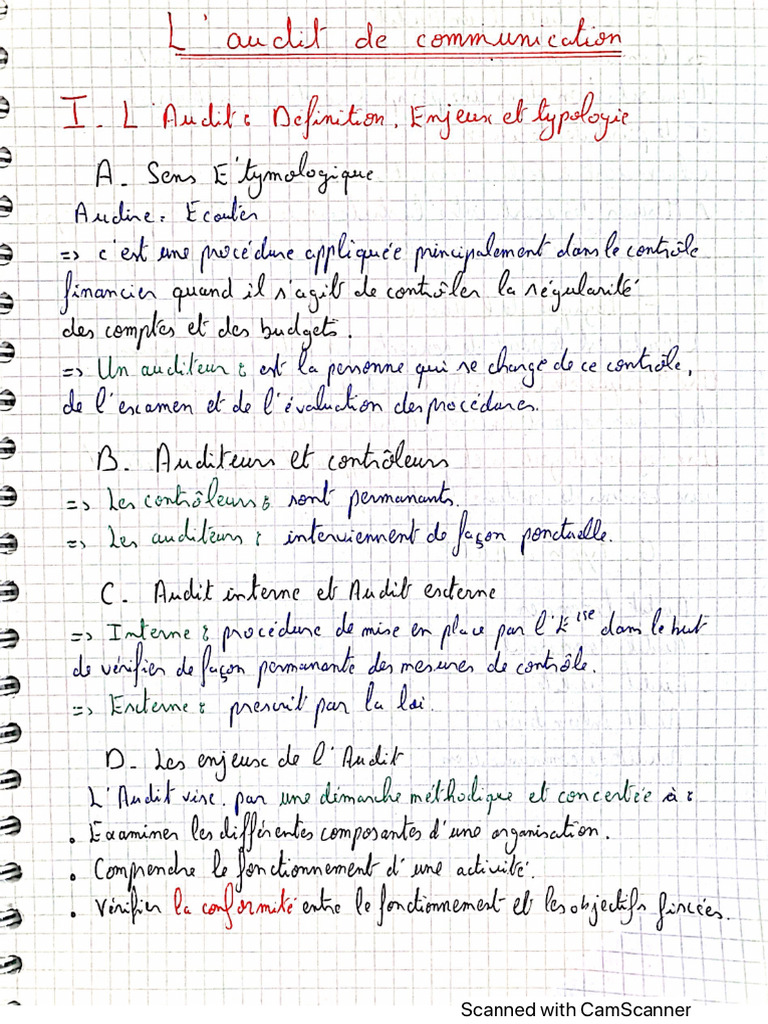 L'audit de communication
I. L'Audit : Definition, Enjeux et typologie
A. Sens Etymologique
Audire : Ecouter
=> c'est une procédure appliquée principalement dans le contrôle
financier quand il s'agit de contrôler la régularité
des comptes et des budgets.
=> Un auditeur : est la personne qui se charge de ce contrôle,
de l'examen et de l'évaluation des procédures.
B. Auditeurs et contrôleurs
=> Les contrôleurs : sont permanants.
=> Les auditeurs : interviennent de façon ponctuelle.
C. Audit interne et Audit externe
=> Interne : procédure de mise en place par l'E^ise dans le but
de vérifier de façon permanante des mesures de contrôle.
=> Externe : prescrit par la loi.
D. Les enjeux de l'Audit
L'Audit vise par une démarche méthodique et concertée à :
. Examiner les différentes composantes d'une organisation.
. Comprendre le fonctionnement d'une activité.
. Vérifier la conformité entre le fonctionnement et les objectifs fixées.
Scanned with CamScanner